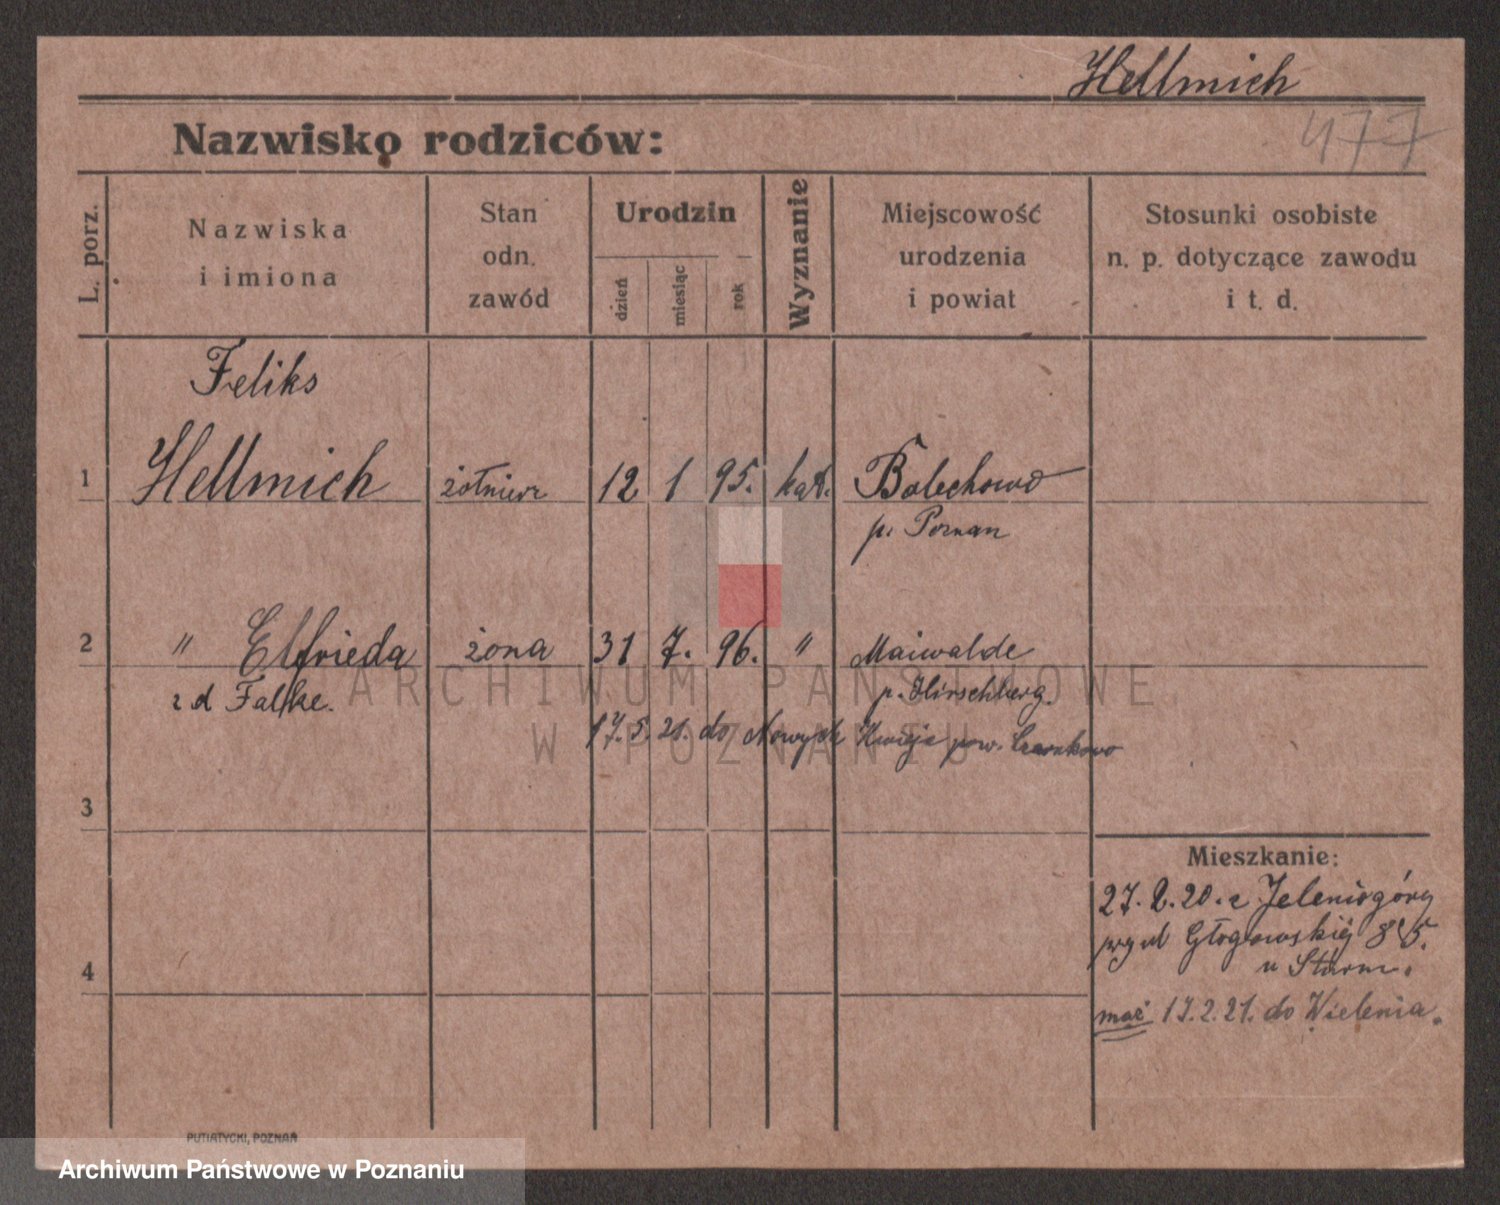 Hellmich
477
Nazwisko rodziców:
L. porz.
Nazwiska
i imiona
Stan
odn.
zawód
Urodzin
dzień
miesiąc
rok
Wyznanie
Miejscowość
urodzenia
i powiat
Stosunki osobiste
n. p. dotyczące zawodu
i t. d.
Feliks
1 Hellmich żołnierz 12 1 95. kat. Bolechowo
p. Poznan
2 " Elfrieda żona 31 7. 96. " Maiwalde
z d Falke. p. Hirschberg.
17.5.21. do Nowych pow. Czarnkowo
3
Mieszkanie:
27.2.20. z Jeleniogóry
przy ul Głogowskiéj 85.
4
u Sturm.
mąż 17.2.21. do Wielenia.
PUTIATYCKI, POZNAŃ
ARCHIWUM PAŃSTWOWE
W POZNANIU
Archiwum Państwowe w Poznaniu